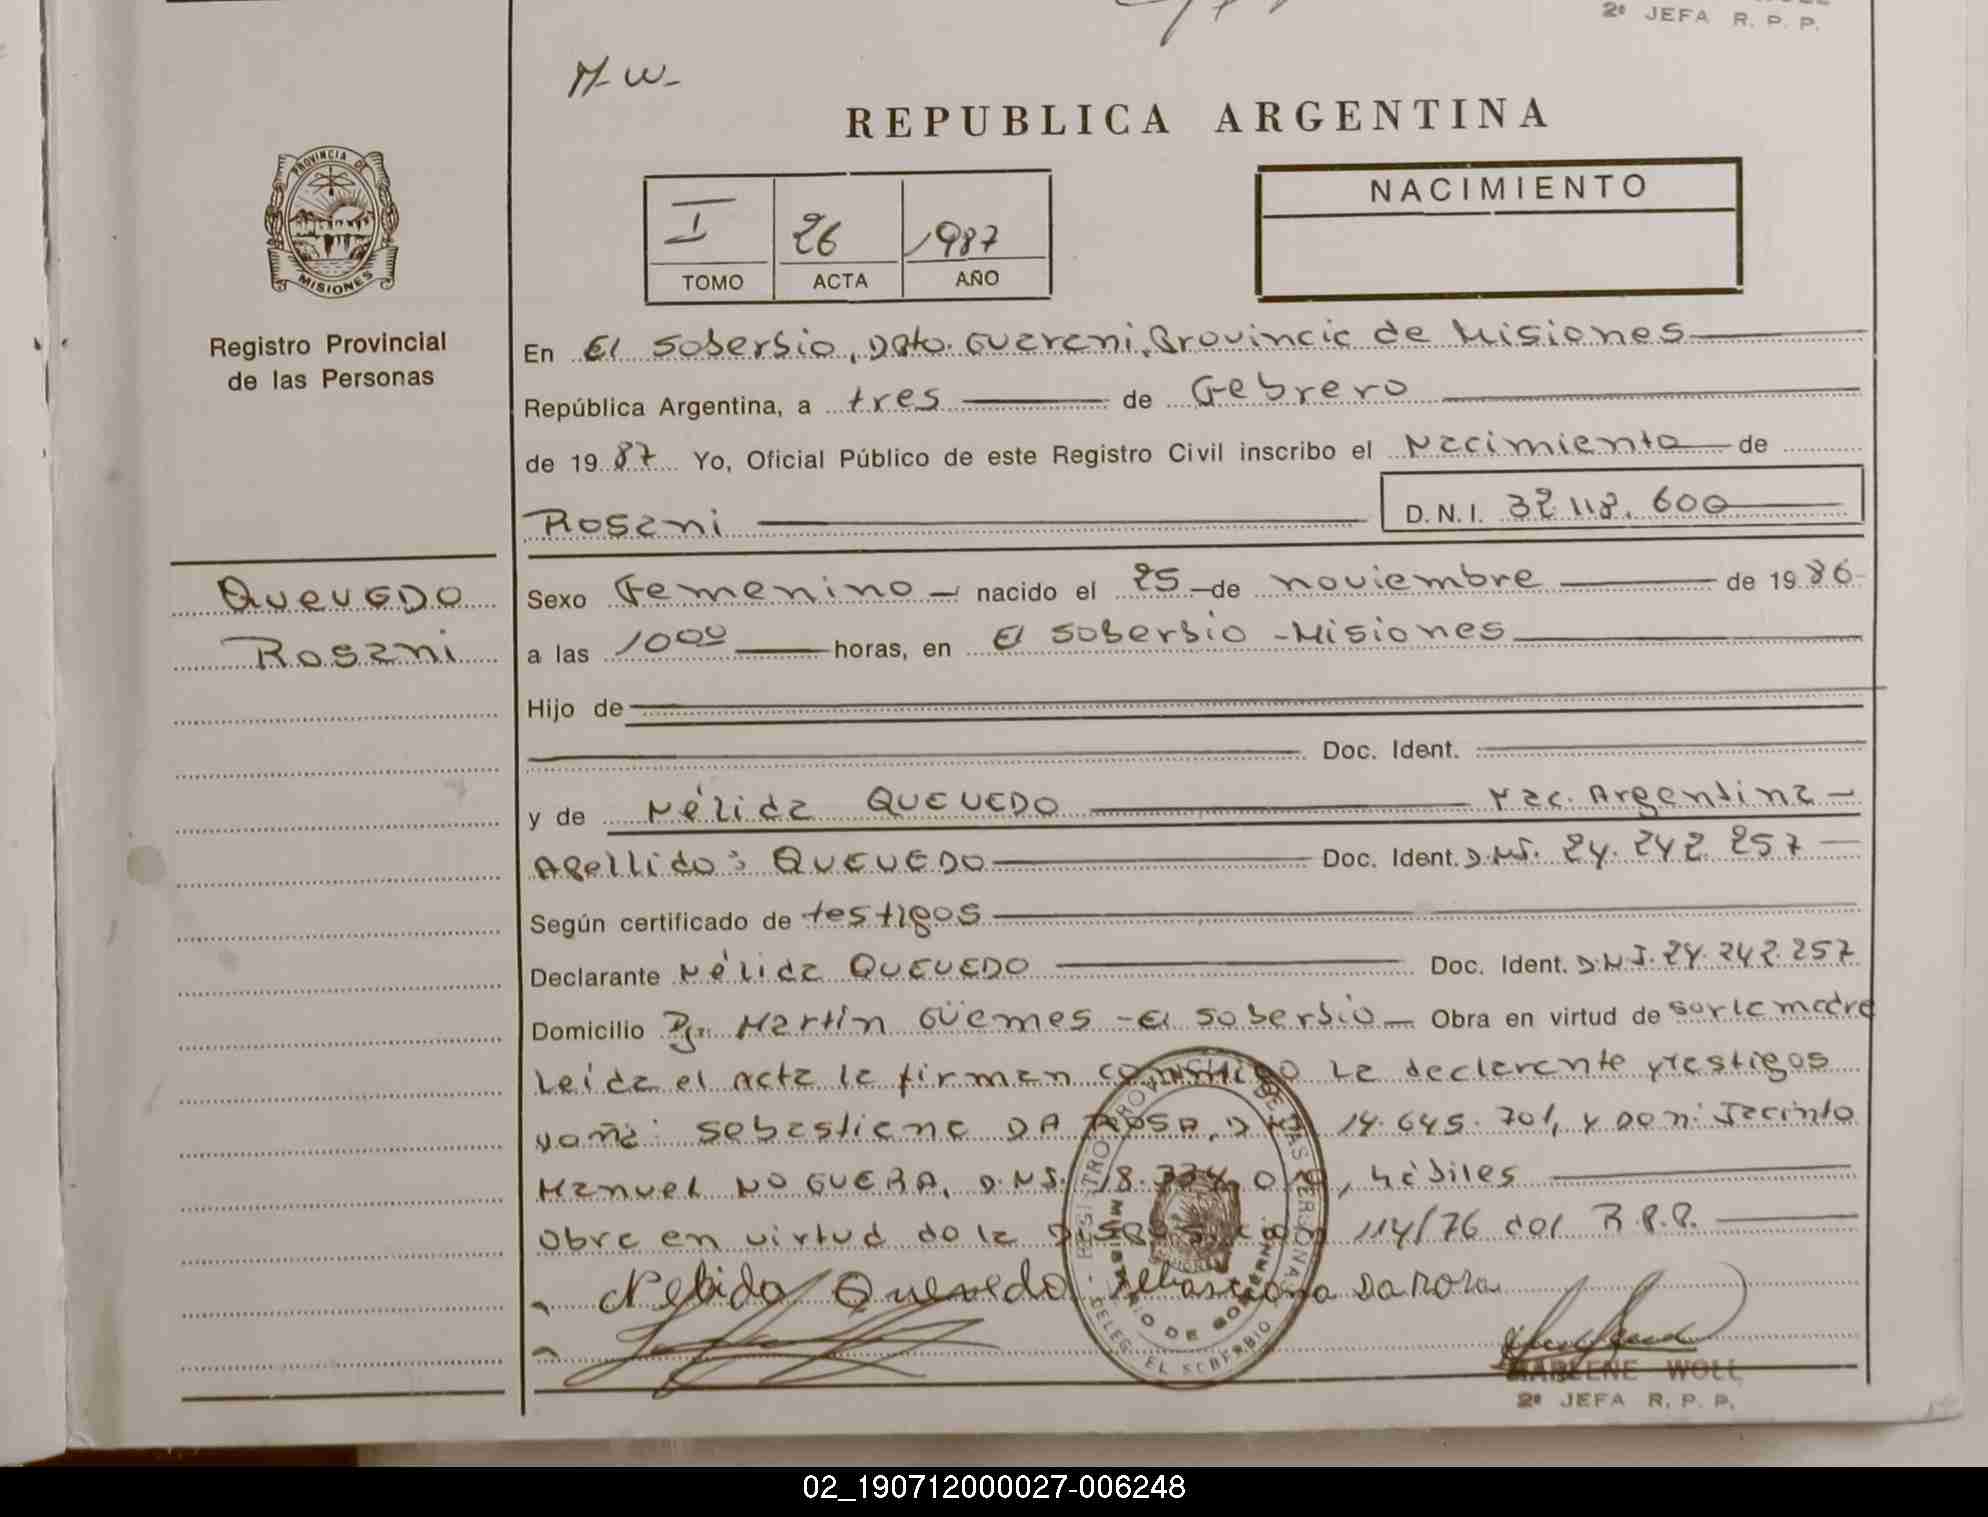 2º JEFA R. P. P.
M-W-
REPUBLICA ARGENTINA
PROVINCIA DE
MISIONES
I 26 1987
TOMO ACTA AÑO
NACIMIENTO
Registro Provincial
de las Personas
En El Soberbio, Dpto. Guarani, Provincia de Misiones
República Argentina, a tres de Febrero
de 1987 Yo, Oficial Público de este Registro Civil inscribo el Nacimiento de
Rosani D.N.I. 32.118.600
QUEVEDO
Rosani
Sexo Femenino - nacido el 25 - de noviembre de 1986-
a las 10 00 horas, en El Soberbio - Misiones
Hijo de
Doc. Ident.
y de Nélida QUEVEDO Nac. Argentina -
Apellido: QUEVEDO Doc. Ident. D.N.I. 24.242.257
Según certificado de testigos
Declarante Nélida QUEVEDO Doc. Ident. D.N.I. 24.242.257
Domicilio Martín Güemes - El Soberbio - Obra en virtud de ser la madre
Leída el acta la firman conmigo la declarante y testigos
doña: Sebastiana DA ROSA, D 14.645.701, y Don: Jacinto
Manuel NOGUERA, D.N.I. 18.334.0 , hábiles
Obra en virtud de la Disposición 114/76 del R.P.P.
Nelida Quevedo Sebastiana Da Rosa
REGISTRO PROVINCIAL DE LAS PERSONAS
MINISTERIO DE GOBIERNO
DELEG. EL SOBERBIO
MARLENE WOLL
2º JEFA R. P. P.
02_190712000027-006248